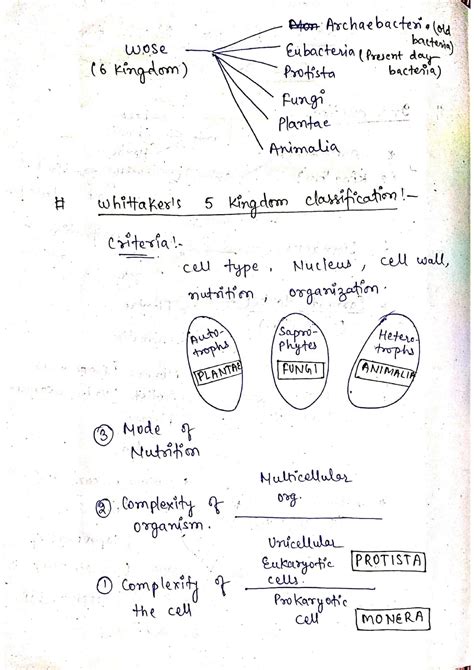 Archaebacteri • (old
bacteria)
Wose
(6 kingdom)
Eubacteria (Present day
bacteria)
Protista
Fungi
Plantae
Animalia
# Whittaker's 5 kingdom classification!-
Criteria!-
cell type, Nucleus, cell wall,
nutrition, organization.
Auto-
trophs
PLANTAE
Sapro-
Phytes
FUNGI
Hetero-
trophs
ANIMALIA
③ Mode of
Nutrition
Multicellular
org.
② Complexity of
organism.
Unicellular
Eukaryotic
cells.
PROTISTA
① Complexity of
the cell
Prokaryotic
cell
MONERA